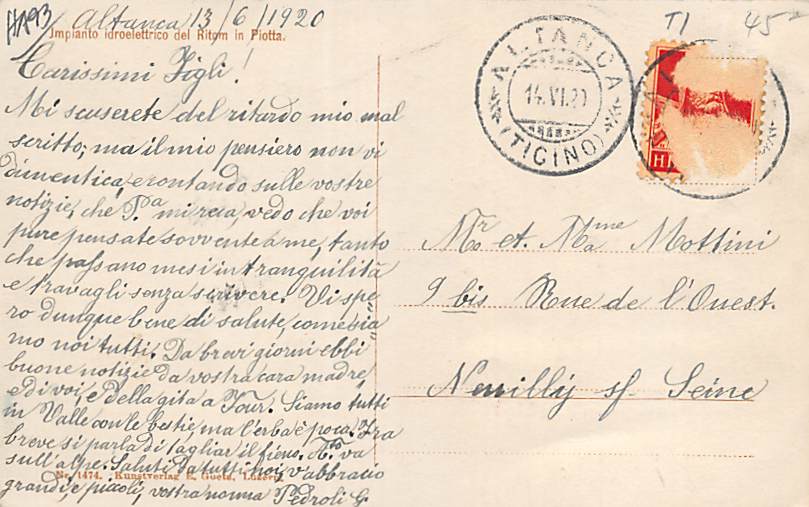 HA93
Altanca 13/6/1920
Impianto idroelettrico del Ritom in Piotta.
Carissimi Figli!
Mi scuserete del ritardo mio mal
scritto, ma il mio pensiero non vi
dimentica, e rontando sulle vostre
notizie, che Pa mi reca, vedo che voi
pure pensate sovvente a me, tanto
che passano mesi in tranquilità
e travagli senza scrivere. Vi spe
ro dunque bene di salute, come sia
mo noi tutti. Da brevi giorni ebbi
buone notizie da vostra cara madre
e di voi, e della gita a Tour. Siamo tutti
in Valle con le bestie, ma l'erba è poca. Fra
breve si parla di tagliar il fieno. va
sull'alpe. Saluti da tutti noi, v'abbracio
grandi, e piccoli, vostra nonna Pedroli G.
Nr. 1474. Kunstverlag E. Goetz, Luzern.
TI 45
ALTANCA
14.VI.20
(TICINO)
H
Mr et Mme Mottini
9 bis Rue de l'Ouest.
Neuilly s/ Seine